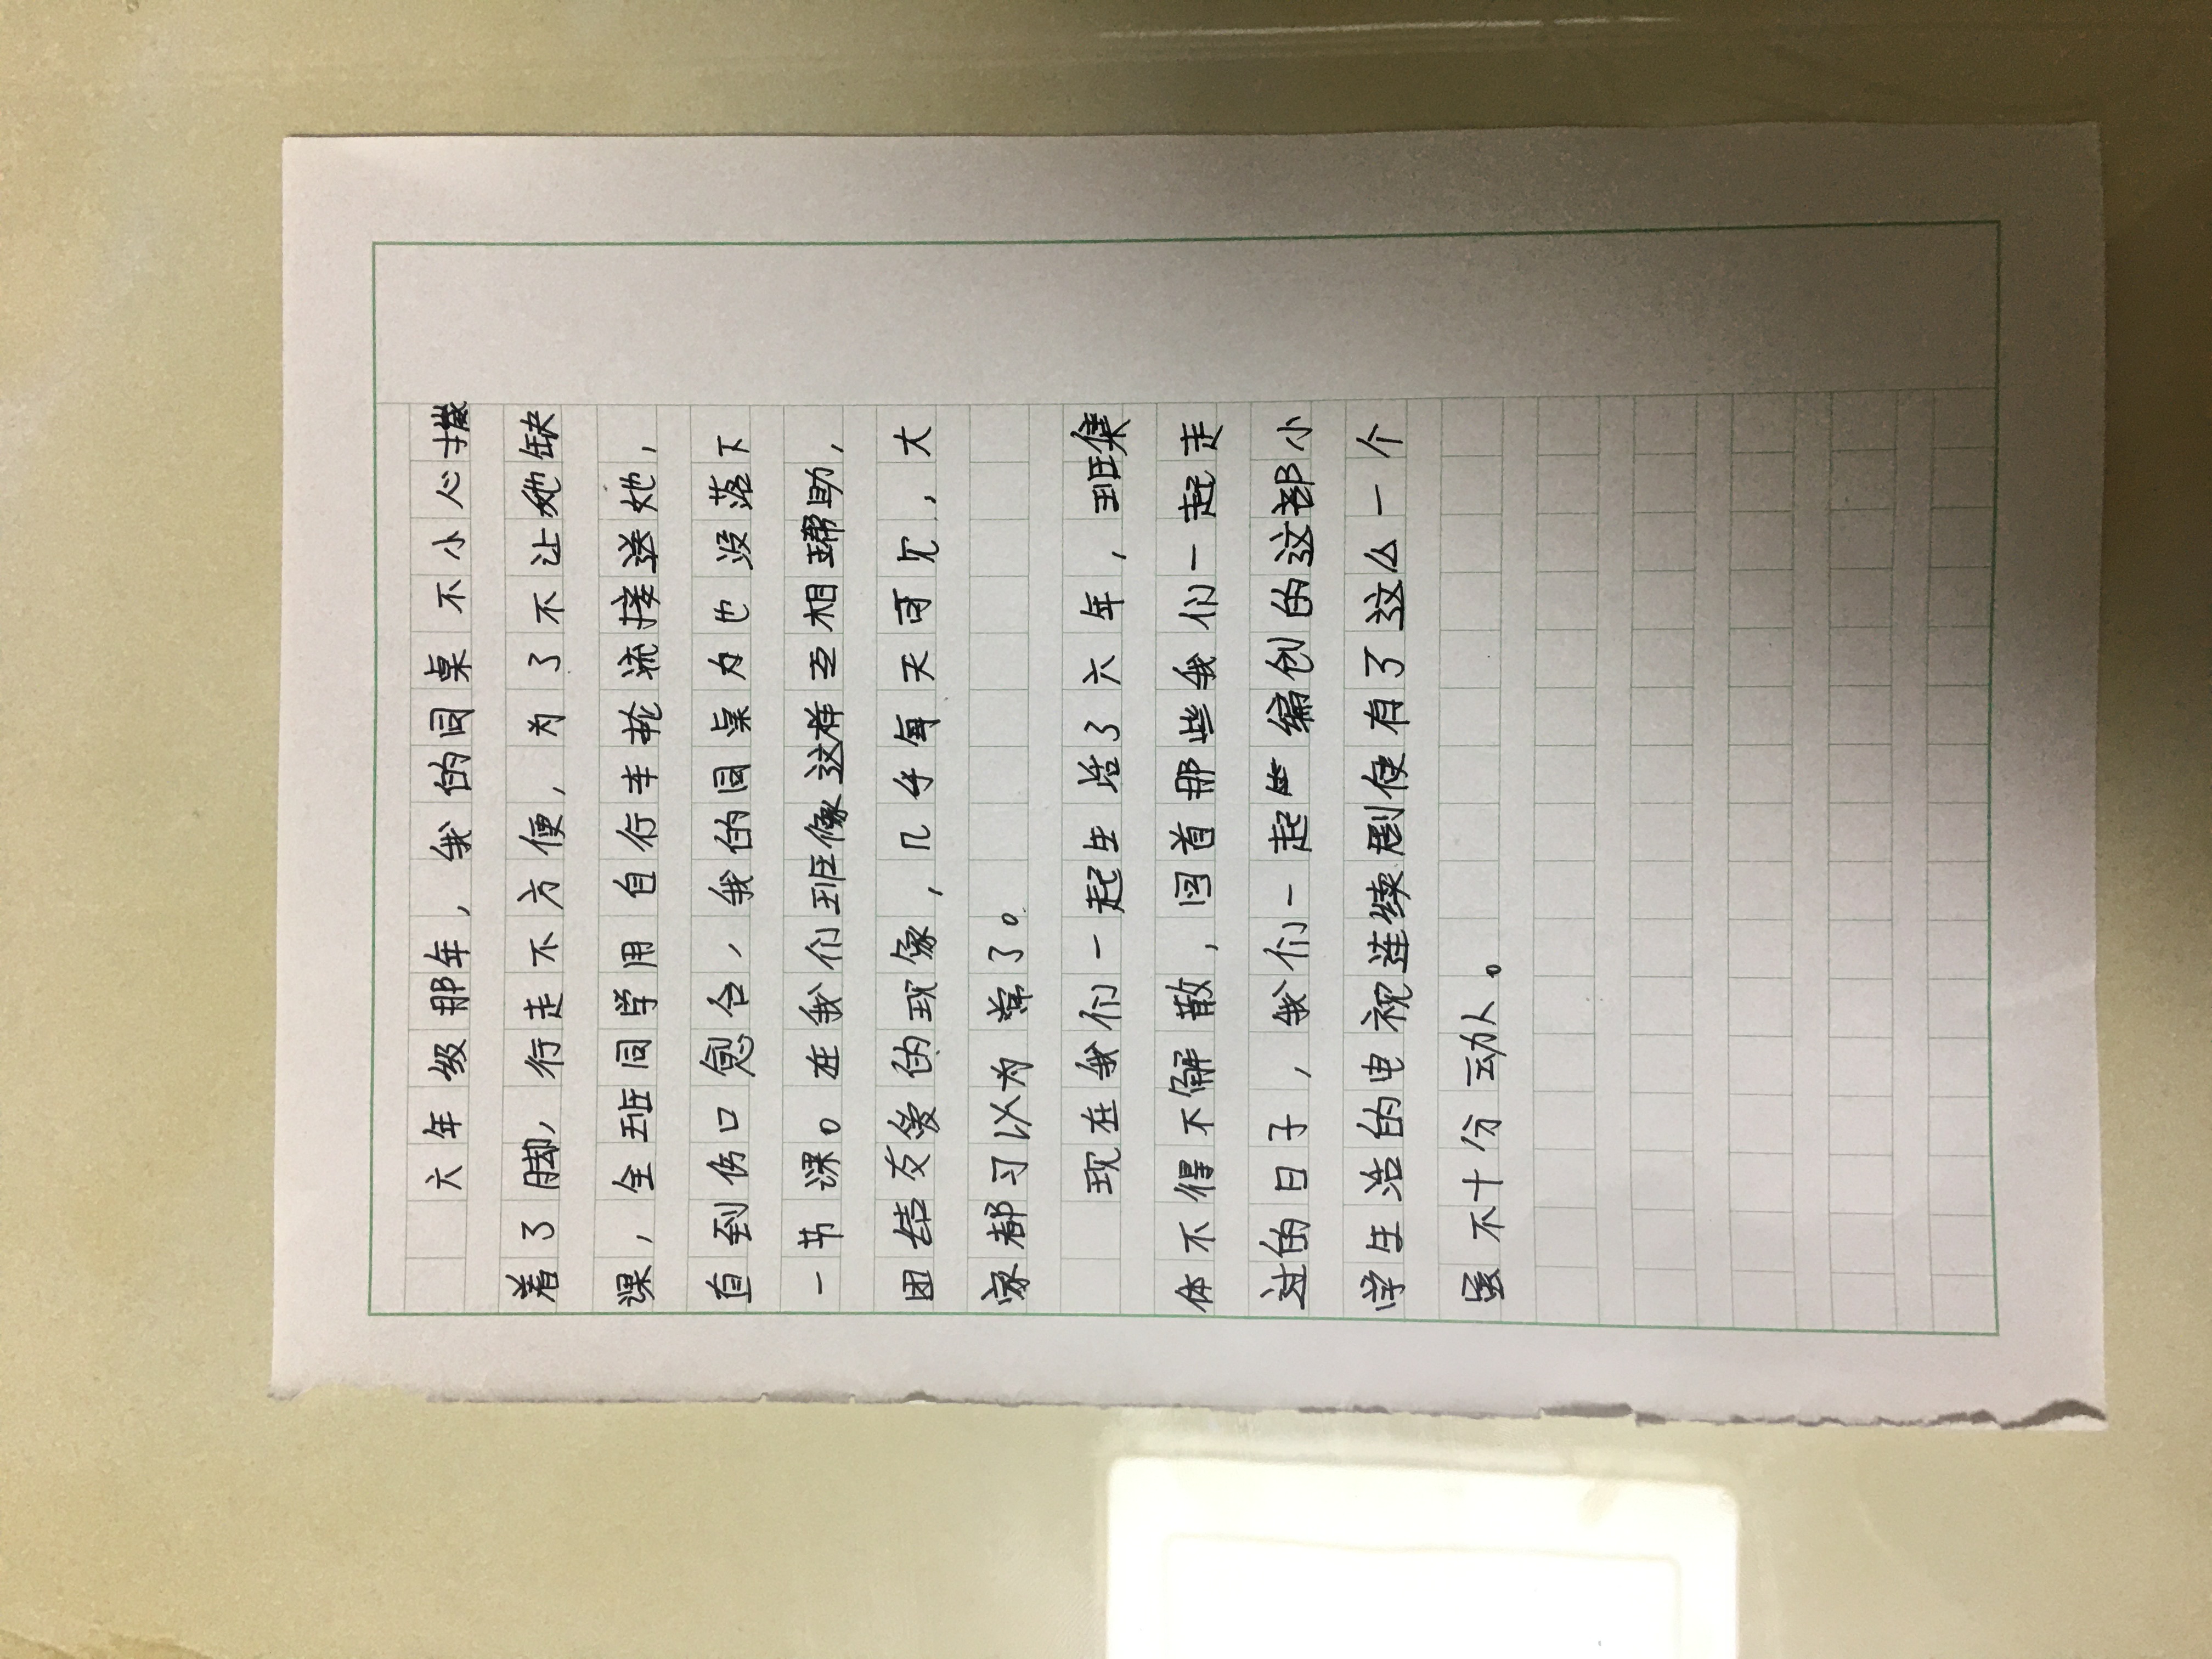 六年级那年，我的同桌不小心
着了脚，行走不方便，为了不让她缺
课，全班同学用自行车轮流接送她，
直到伤口愈合，我的同桌为也没落下
一节课。在我们班像这样互相帮助，
团结友爱的现象，几乎每天可见，大
家都习以为常了。
现在我们一起生活了六年，班集
体不得不解散，回首那些我们一起走
过的日子，我们一起编创的这部小
学生活的电视连续剧便有了这么一个
虽不十分动人。